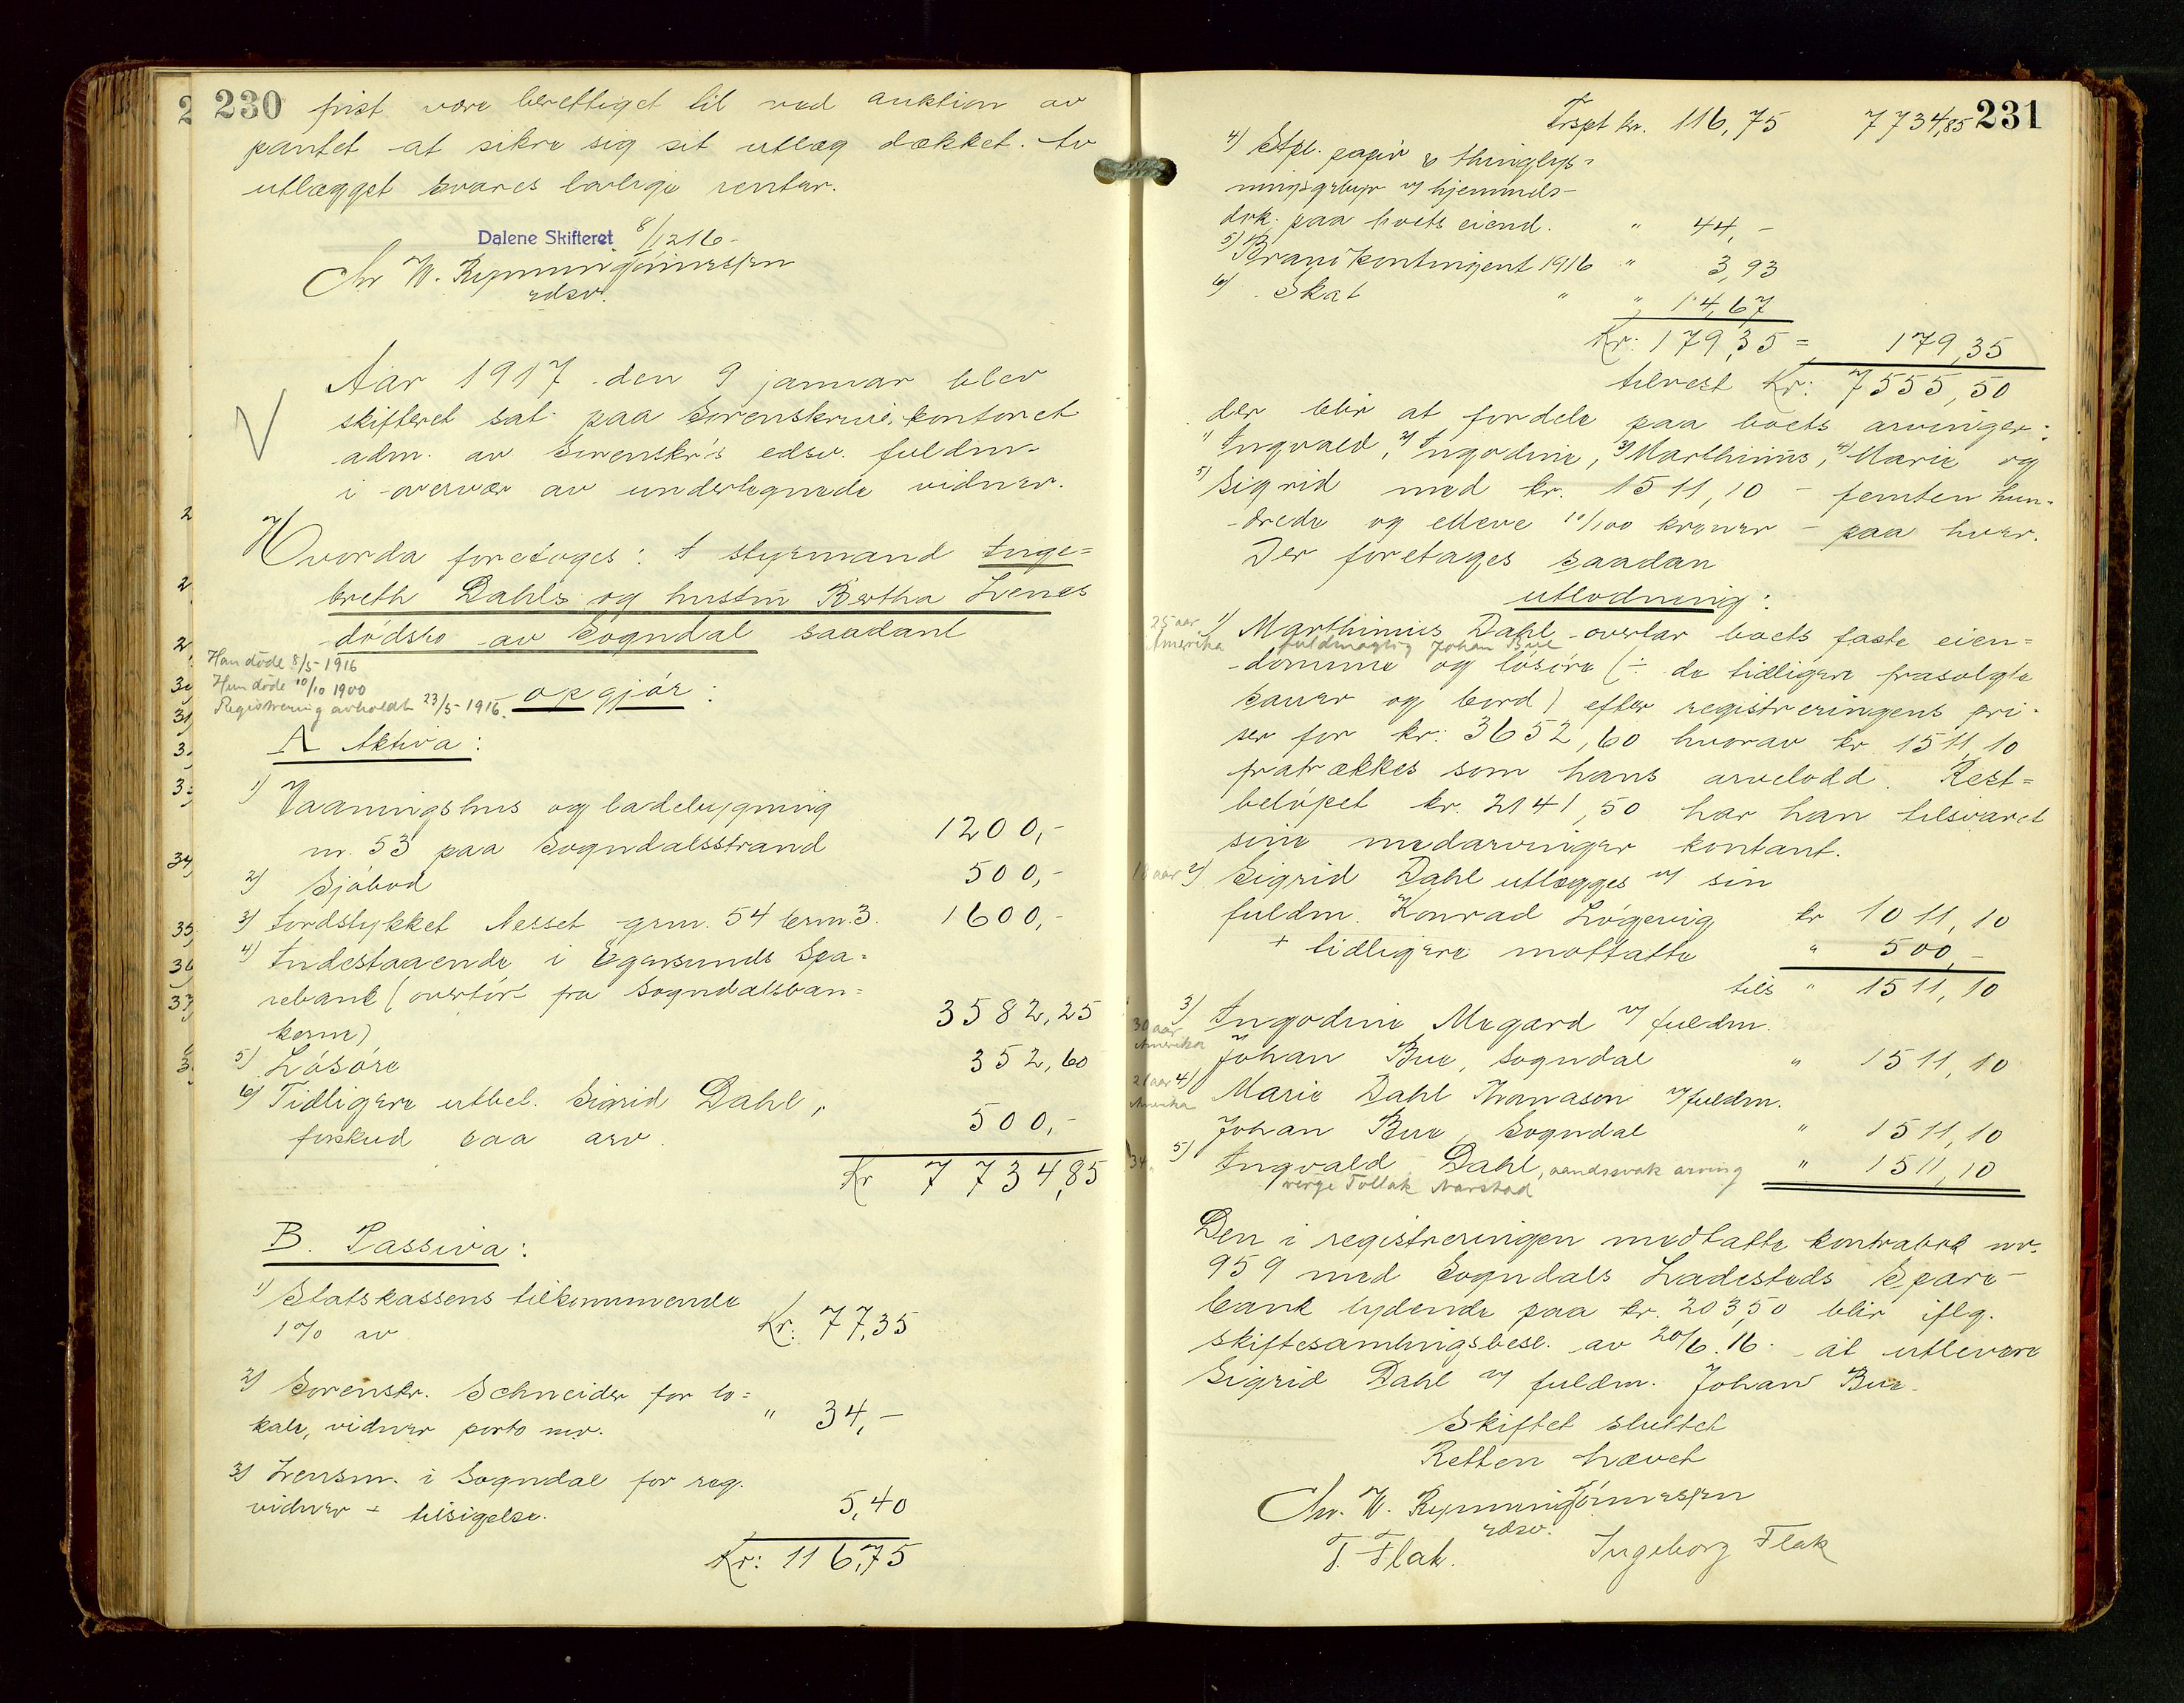 230
frist være berettiget til ved auktion av
pantet at sikre sig sit utlæg dækket. Av
utlægget svares lovlige renter.
Dalene Skifteret 8/12 16
Chr W. Rynning Tönnessen
edsv.
Aar 1917 den 9 januar blev
skifteret sat paa Sorenskriv. kontoret
adm. av Sorenskr's edsv. fuldm.
i overvær av undertegnede vidner.
Hvorda foretoges: † styrmand Inge=
breth Dahls og hustru Bertha Lenes
dödsbo av Sogndal saadant
Han döde 8/5-1916
Hun döde 10/10 1900
Registrering avholdt 23/5-1916.
opgjör:
A Aktiva:
1) Vaaningshus og ladebygning
nr. 53 paa Sogndalsstrand 1200,-
2) Sjöbod 500,-
3) Jordstykket Nesset grn. 54 brn. 3. 1600,-
4) Indestaaende i Egersunds Spa=
rebank (overfört fra Sogndalsban=
kerne) 3582,25
5) Lösöre 352,60
6) Tidligere utbet. Sigrid Dahl,
forskud paa arv. 500,-
Kr 7734,85
B. Passiva:
1) Statskassens tilkommende
1% av Kr: 77,35
2) Sorenskr. Schneider for lo=
kale, vidner porto mv. " 34,-
3) Lensm. i Sogndal for reg.
vidner + tilsigelse. 5,40
Kr: 116,75
231
Trspt kr. 116,75 7734,85
4) Stpl. papir & thinglys=
ningsgebyr v/ hjemmels-
dok. paa boets eiend. " 44,-
5) Brandkontingent 1916 " 3,93
6) Skat " " 14,67
Kr: 179,35 = 179,35
tilrest Kr: 7555,50
der blir at fordele paa boets arvinger:
1) Ingvald, 2) Ingodine, 3) Marthinius, 4) Marie og
5) Sigrid med kr. 1511,10 - femten hun-
drede og elleve 10/100 kroner - paa hver.
Der foretages saadan
utlodning:
25 aar
Amerika
1) Marthinius Dahl overtar boets faste eien=
fuldmægtig Johan Bue
domme og lösöre (÷ de tidligere frasolgte
sauer og bord) efter registreringens pri-
ser for kr: 3652,60 hvorav kr 1511,10
fratrækkes som hans arvelodd. Rest=
belöpet kr. 2141,50 har han tilsvaret
sine medarvinger kontant.
18 aar 2) Sigrid Dahl utlægges v/ sin
fuldm. Konrad Lögevig kr 1011,10
+ tidligere mottatte " 500,-
tils " 1511,10
30 aar
Amerika
3) Ingodine Megard v/ fuldm.
Johan Bue, Sogndal " 1511,10
21 aar
Amerika
4) Marie Dahl Thomason v/ fuldm.
Johan Bue, Sogndal " 1511,10
34 "
5) Ingvald Dahl, aandssvak arving " 1511,10
verge Tollak Aarstad
Den i registreringen medtatte kontrabok nr.
959 med Sogndals Ladesteds Spare-
bank lydende paa kr. 203,50 blir iflg.
skiftesamlingsbesl. av 20/6.16. at utlevere
Sigrid Dahl v/ fuldm. Johan Bue.
Skiftet sluttet
Retten hævet
Chr. W. Rynning Tönnessen
edsv.
T. Flak. Ingeborg Flak